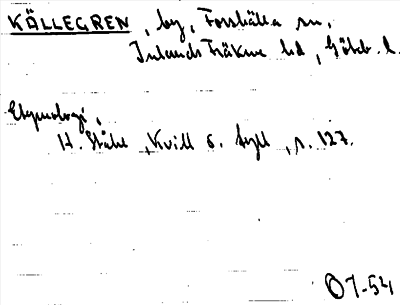 KÄLLEGREN, by, Forshälla sn,
Inlands Fräkne hd, Göteb. l.
Etymologi,
H. Ståhl, Kvill o. tyll, s. 127.
OJ-54